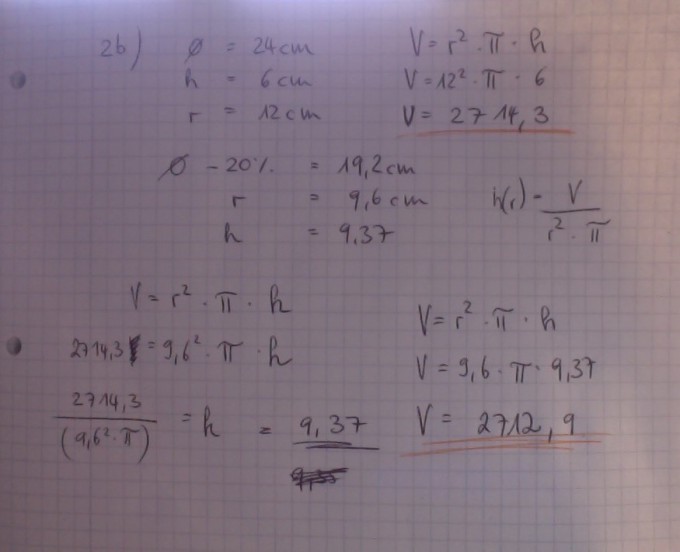 2b) ø = 24cm
h = 6cm
r = 12cm
V = r² · π · h
V = 12² · π · 6
V = 2714,3
Ø - 20% = 19,2cm
r = 9,6cm
h = 9,37
h(r) = V / r² · π
V = r² · π · h
2714,3 = 9,6² · π · h
2714,3 / (9,6² · π) = h = 9,37
V = r² · π · h
V = 9,6 · π · 9,37
V = 2712,9